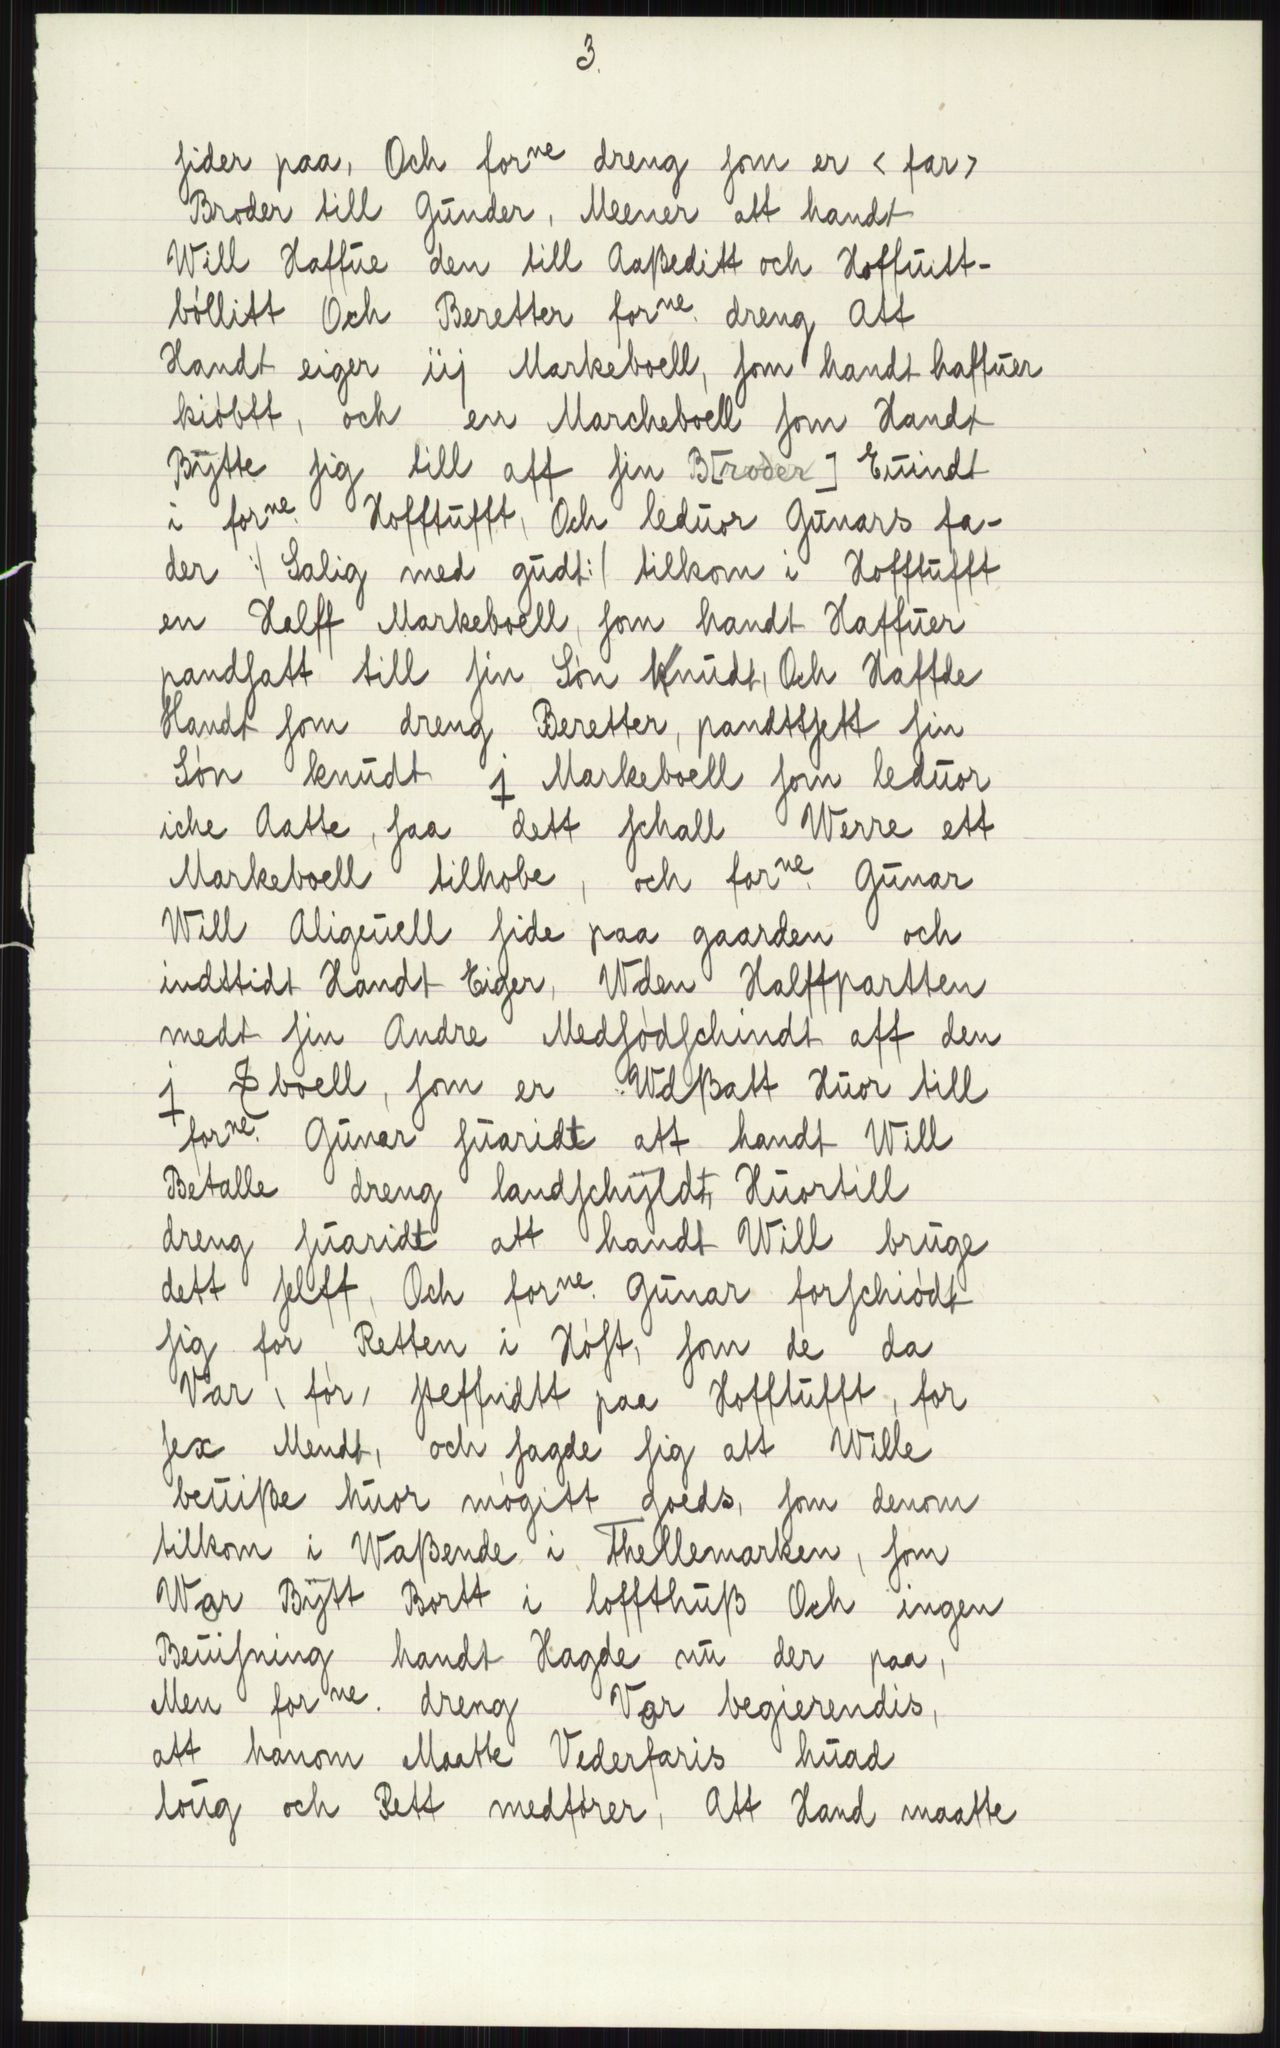 3.
sider paa, Och forne dreng som er < far >
Broder till Gunder, Meener att handt
Will Haffue den till Aaßeditt och Hoffuitt-
böllitt Och Beretter forne. dreng Att
Handt eiger iij Markeboell, som handt haffuer
kiöbtt, och en Marcheboell som Handt
Bÿtte sig till aff sin B[roder] Euindt
i forne. Hofftufft, Och leduor Gunars fa-
der :/ Salig med gudt :/ tilkom i Hofftufft
en Halff Markeboell, som handt Haffuer
pandsatt till sin Sön Knudt, Och Haffde
Handt som dreng Beretter, pandttsett sin
Sön knudt j Markeboell som leduor
iche Aatte, saa dett schall Werre ett
Markeboell tilhobe, och forne. Gunar
Will Aligeuell side paa gaarden och
indttidt Handt Eiger, Wden Halffpartten
medt sin Andre Medsödschindt aff den
j boell, som er Wdßatt Huor till
forne. Gunar suaridt att handt Will
Betalle dreng landschÿldt, Huortill
dreng suaridt att handt Will bruge
dett selff, Och forne. Gunar forschiödt
sig for Retten i Höst, som de da
Var < for > steffndtt paa Hofftufft, for
sex Mendt, och sagde sig att Wille
beuiße huor mögitt goeds, som denom
tilkom i Waßende i Thellemarken, som
War Bÿtt Bortt i loffthuß Och ingen
Beuisning handt Hagde nu der paa,
Men forne. dreng Var begierendis,
att hanom Maatte Vederfaris huad
loug och Rett medförer, Att Hand maatte